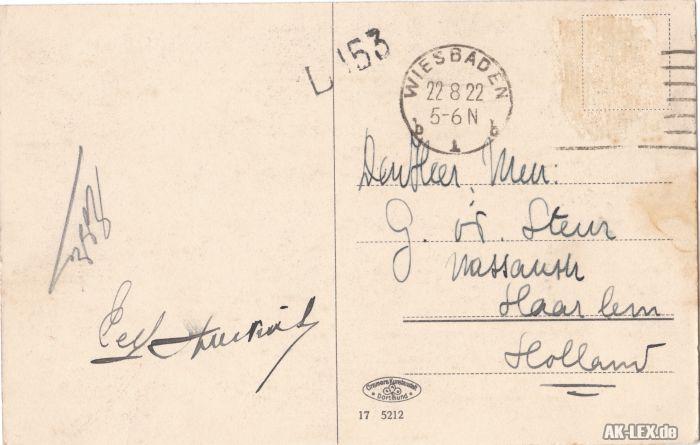 L 153
WIESBADEN
22 8 22
5-6 N
b 1 b
Den Heer, Mevr:
G. vd. Steur
Nassaustr
Haarlem
Holland
Cramers Kunstanstalt
Dortmund
17 5212
AK-LEX.de